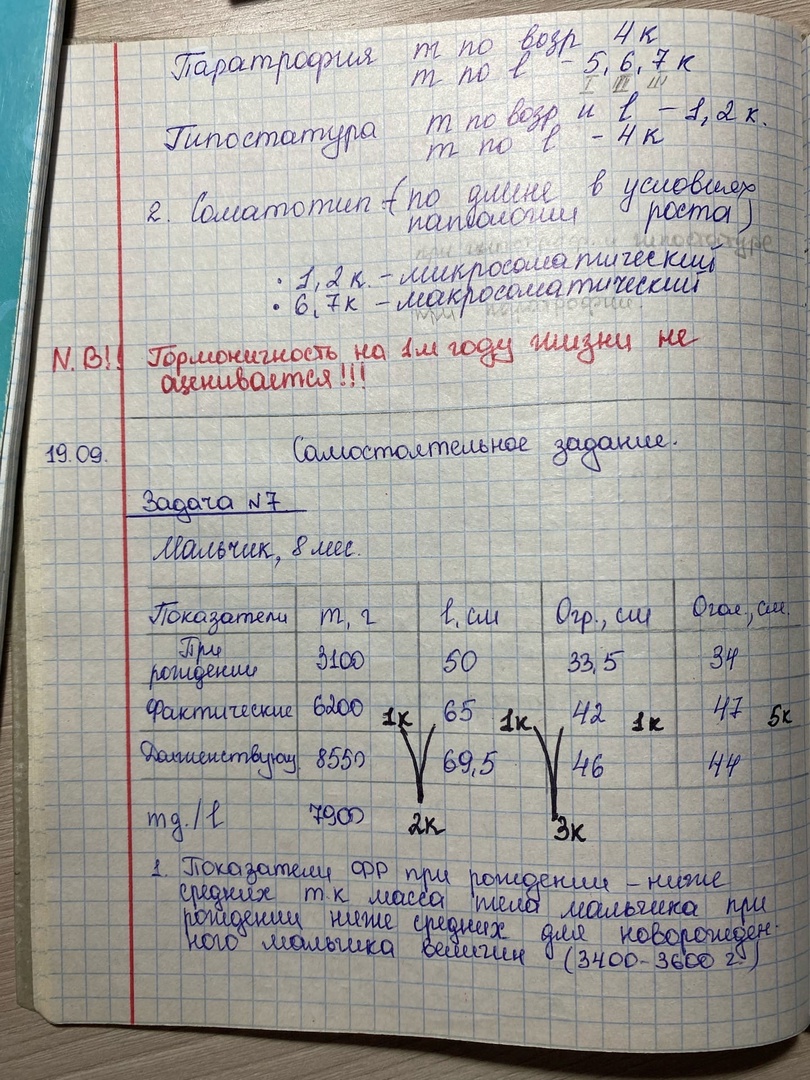 Паратрофия m по возр 4к
m по l - 5, 6, 7 к
I II III
Гипостатура m по возр и l - 1, 2 к.
m по l - 4к
2. Соматотип - (по длине в условиях
патологии роста)
• 1, 2 к. - микросоматический
• 6, 7к - макросоматический
N.B!! Гормоничность на 1м году жизни не
оценивается!!!
19.09. Самостоятельное задание.
Задача №7
Мальчик, 8 мес.
Показатели m, г l, см Огр., см Огол., см.
При рождении 3100 50 33,5 34
Фактические 6200 1к 65 1к 42 1к 47 5к
Долженствующ 8550 69,5 46 44
mд./l 7900 2к 3к
1. Показатели ФР при рождении - ниже
средних т.к масса тела мальчика при
рождении ниже средних для новорожден-
ного мальчика величин (3400-3600 г.)